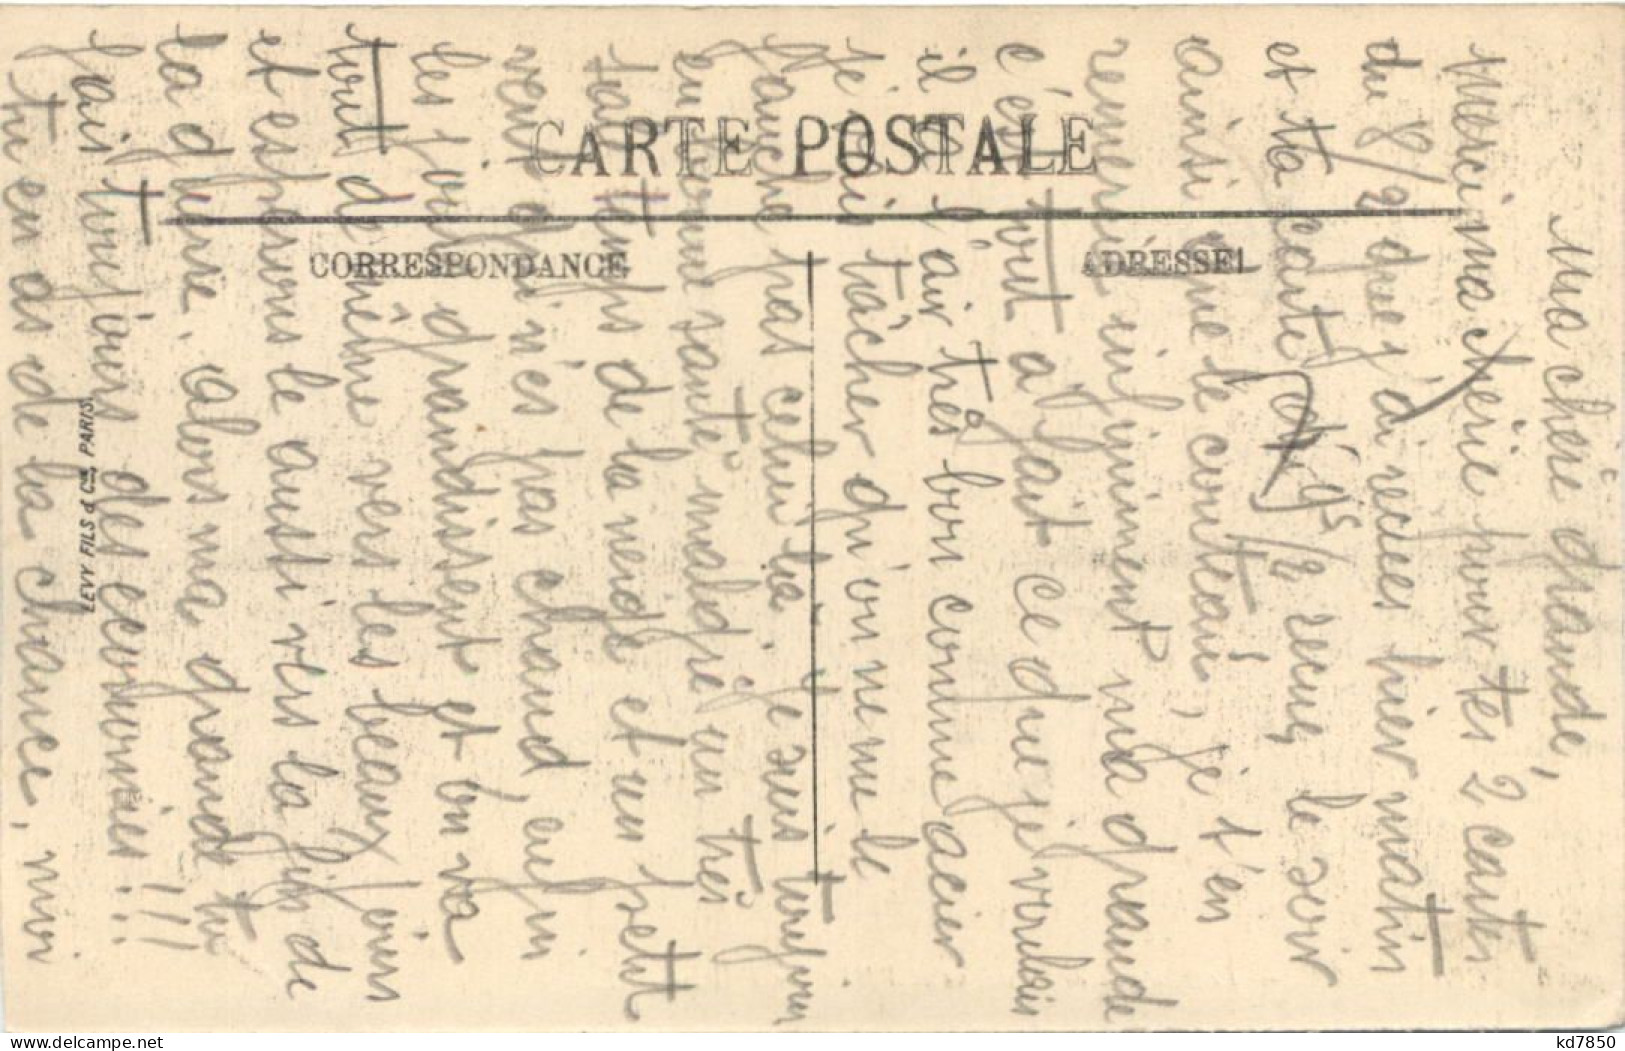 CARTE POSTALE
CORRESPONDANCE
ADRESSE
LEVY FILS & Cie, PARIS.
Ma chère grande,
Merci ma chérie pour tes 2 cartes
du 8/2 que j'ai recues hier matin
et ta carte du 9/2 recue le soir
ainsi que le couteau, je t'en
remercie infiniment ma grande
c'est tout à fait ce que je voulais
il a l'air très bon comme acier
je vais tâcher qu'on ne me le
fauche pas celui là. je suis toujours
en bonne santé malgré un très
sale temps de la neige et un petit
vent qui n'es pas chaud, enfin
les jours grandissent et on va
tout de même vers les beaux jours
et esperons le aussi vers la fin de
la guerre. Alors ma grande tu
fais toujours des economies!!!
tu en as de la chance, moi
kd7850